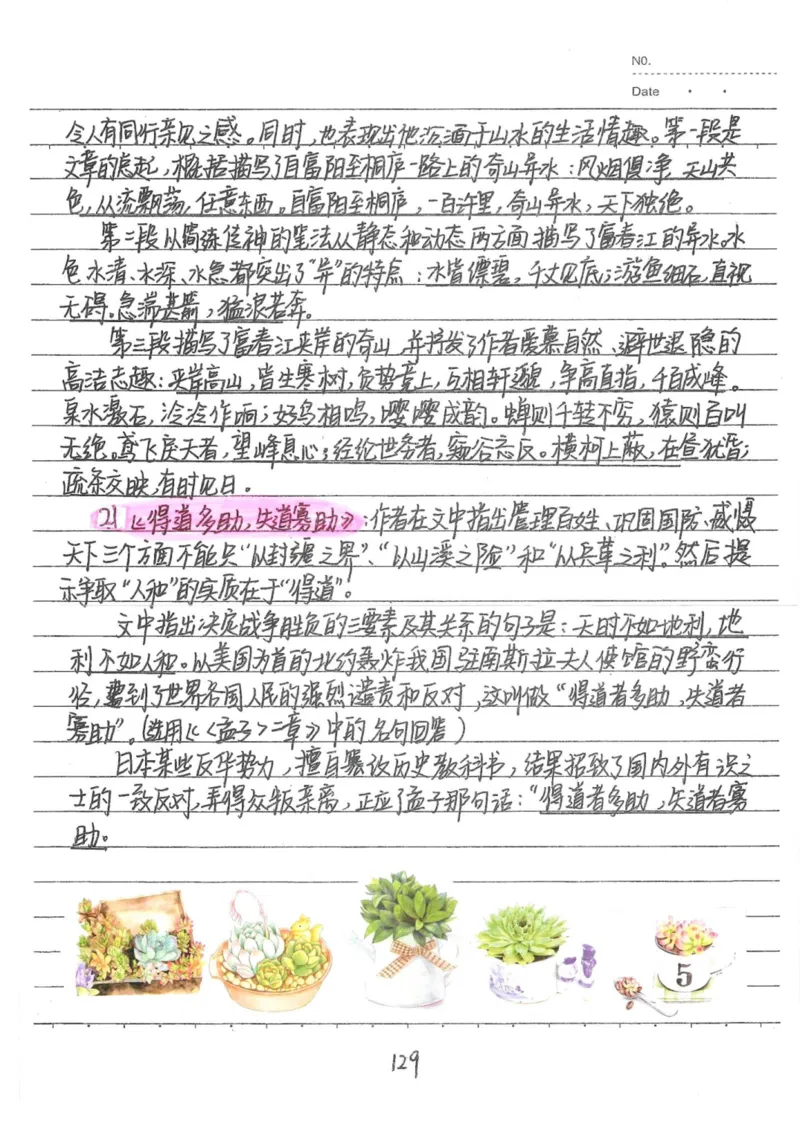 NO.
Date
令人有同行亲见之感。同时,也表现出他沉湎于山水的生活情趣。第一段是
文章的总起,概括描写了自富阳至桐庐一路上的奇山异水:风烟俱净,天山共
色,从流飘荡,任意东西。自富阳至桐庐,一百许里,奇山异水,天下独绝。
第二段以简练传神的笔法从静态和动态两方面描写了富春江的异水。水
色、水清、水深、水急都突出了“异”的特点:水皆缥碧,千丈见底;游鱼细石,直视
无碍。急湍甚箭,猛浪若奔。
第三段描写了富春江夹岸的奇山,并抒发了作者爱慕自然、避世退隐的
高洁志趣:夹岸高山,皆生寒树,负势竞上,互相轩邈,争高直指,千百成峰。
泉水激石,泠泠作响;好鸟相鸣,嘤嘤成韵。蝉则千转不穷,猿则百叫
无绝。鸢飞戾天者,望峰息心;经纶世务者,窥谷忘反。横柯上蔽,在昼犹昏;
疏条交映,有时见日。
21.《得道多助,失道寡助》:作者在文中指出管理百姓、巩固国防、威慑
天下三个方面不能只“以封疆之界”、“以山溪之险”和“以兵革之利”。然后提
示争取“人和”的实质在于“得道”。
文中指出决定战争胜负的三要素及其关系的句子是:天时不如地利,地
利不如人和。以美国为首的北约轰炸我国驻南斯拉夫大使馆的野蛮行
径,遭到了世界各国人民的强烈谴责和反对,这叫做“得道者多助,失道者
寡助”。(选用《<孟子>二章》中的名句回答)
日本某些反华势力,擅自篡改历史教科书,结果招致了国内外有识之
士的一致反对,弄得众叛亲离,正应了孟子那句话:“得道者多助,失道者寡
助。
5
129